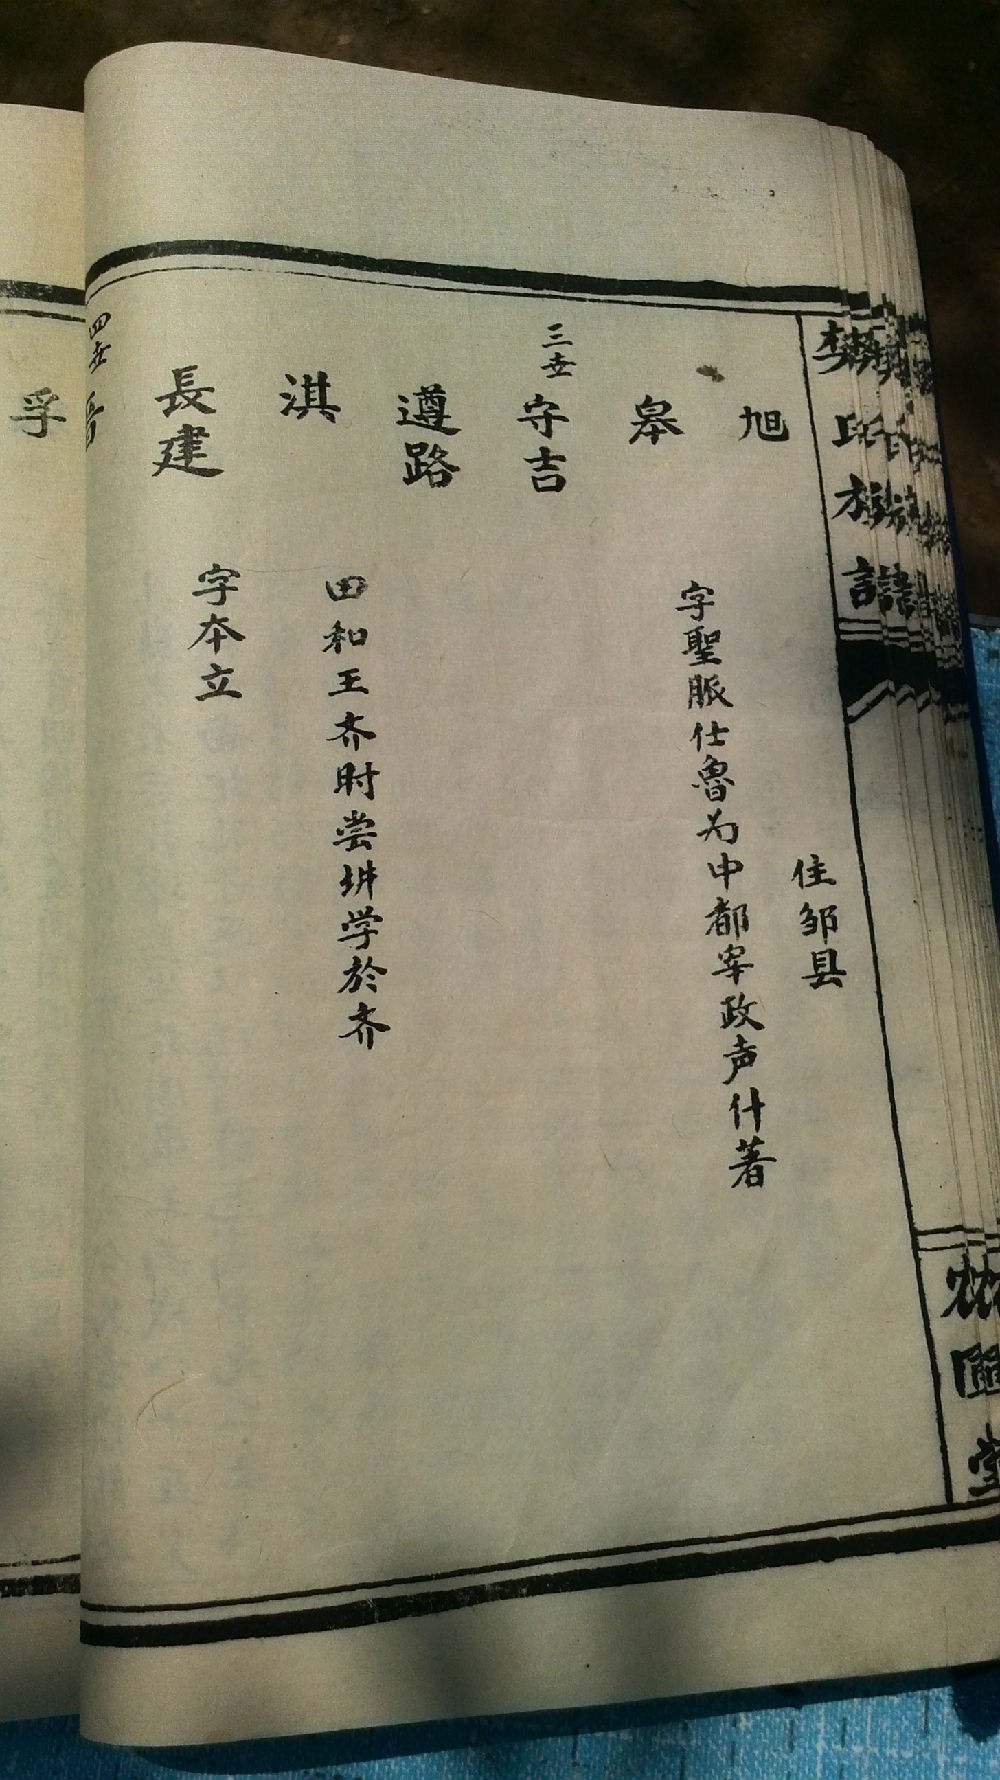 氏族譜
旭
住邹县
皋
字聖脈仕魯为中都宰政声什著
三世
守吉
遵路
淇
田和王齐时尝讲学於齐
長建
字本立
四世
孚